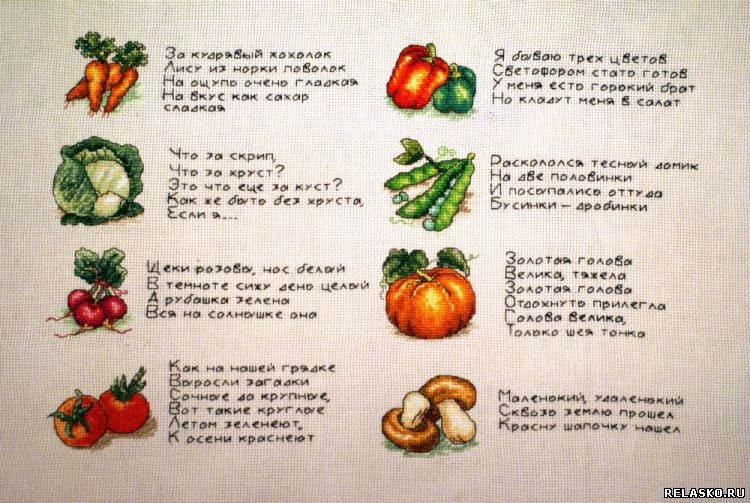 За кудрявый хохолок
Лису из норки поволок
На ощупь очень гладкая
На вкус как сахар
сладкая
Что за скрип,
Что за хруст?
Это что еще за куст?
Как же быть без хруста,
Если я...
Щеки розовы, нос белый
В темноте сижу день целый
А рубашка зелена
Вся на солнышке она
Как на нашей грядке
Выросли загадки
Сочные да крупные,
Вот такие круглые
Летом зеленеют,
К осени краснеют
Я бываю трех цветов
Светофором стать готов
У меня есть горький брат
Но кладут меня в салат
Раскололся тесный домик
На две половинки
И посыпались оттуда
Бусинки – дробинки
Золотая голова
Велика, тяжела
Золотая голова
Отдохнуть прилегла
Голова велика,
Только шея тонка
Маленький, удаленький
Сквозь землю прошел
Красну шапочку нашел
RELASKO.RU